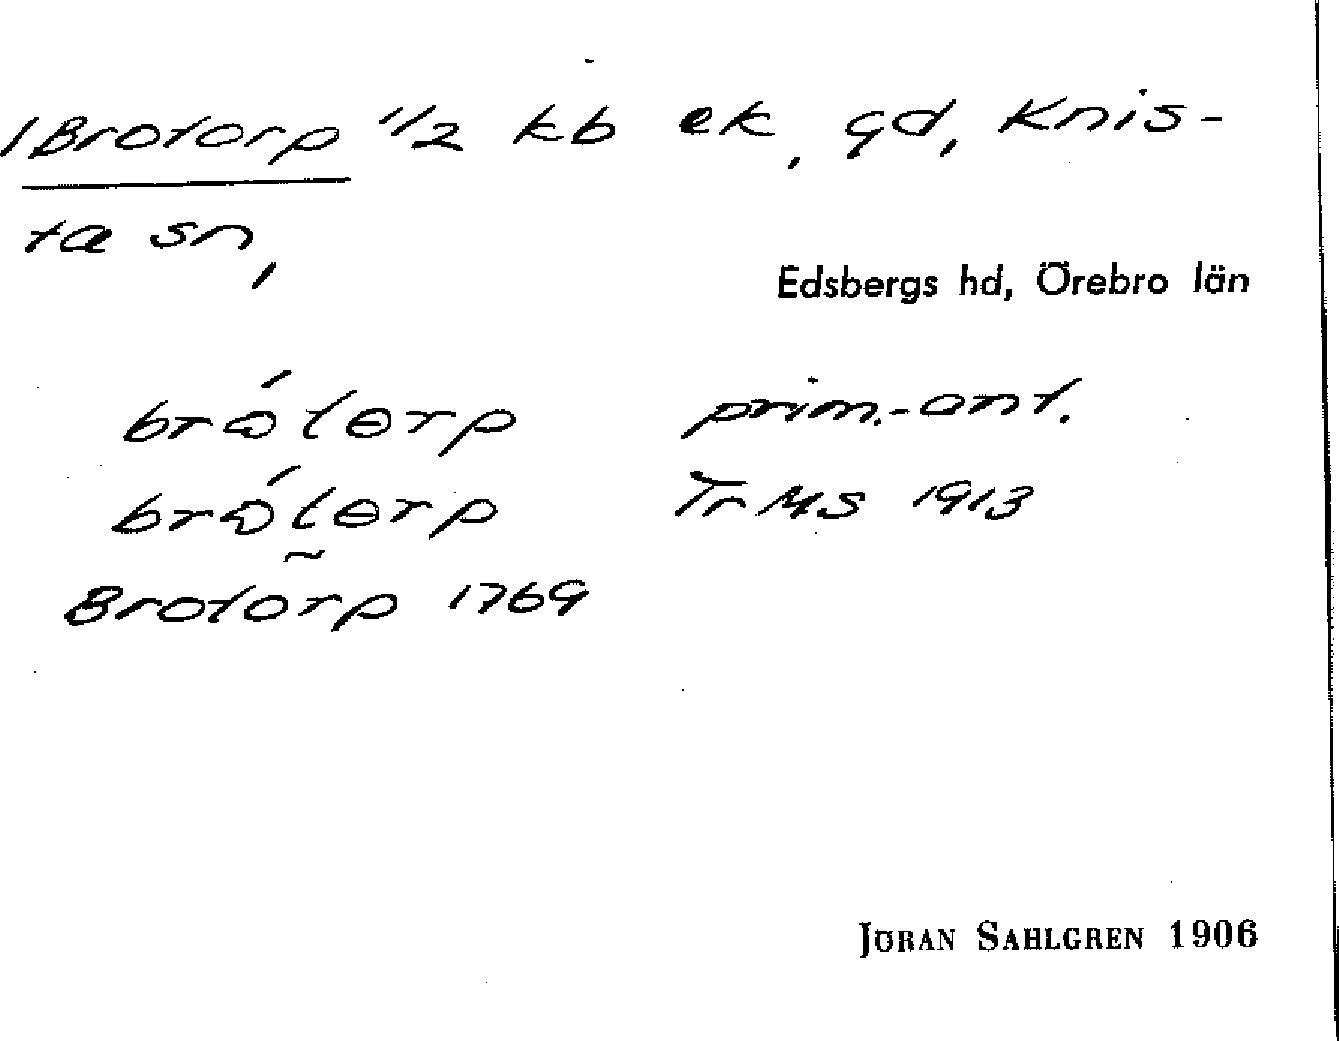 1 Brotorp 1/2 kb ek, gd, Knis-
ta sn,
Edsbergs hd, Örebro län
prim.-ant.
Tr MS 1913
Brotorp 1769
JÖRAN SAHLGREN 1906